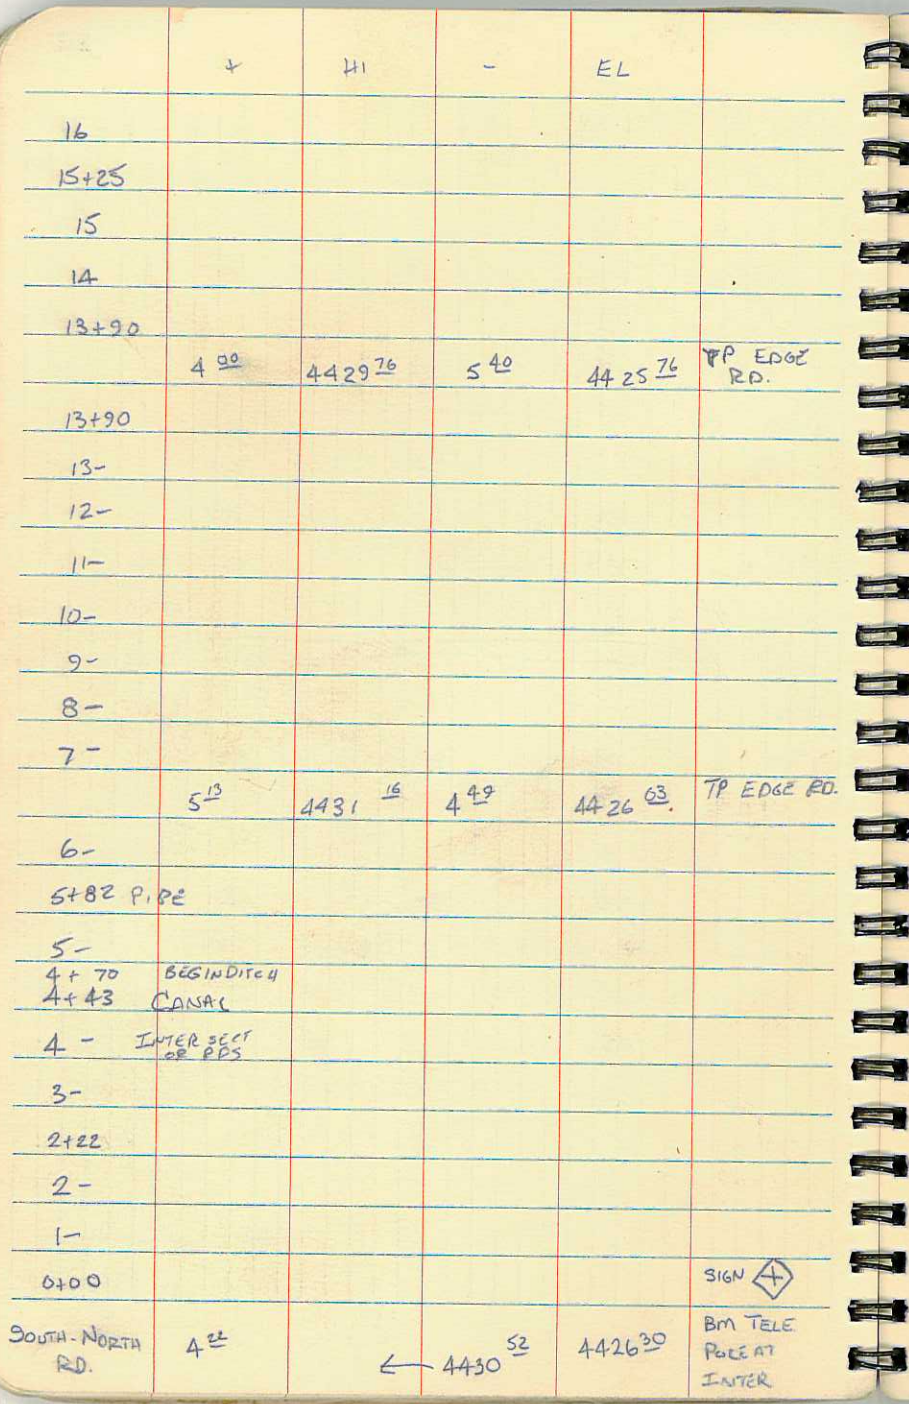 + HI - EL
16
15+25
15
14
13+90
4 00 4429 76 5 40 4425 76 TP EDGE
RD.
13+90
13-
12-
11-
10-
9-
8-
7-
5 13 4431 16 4 49 4426 03. TP EDGE RD.
6-
5+82 PIPE
5-
4+70 BEGIN DITCH
4+43 CANAL
4 - INTERSECT
OF RDS
3-
2+22
2-
1-
0+00 SIGN
SOUTH-NORTH
RD.
4 22 ← 4430 52 4426 30
BM TELE
POLE AT
INTER